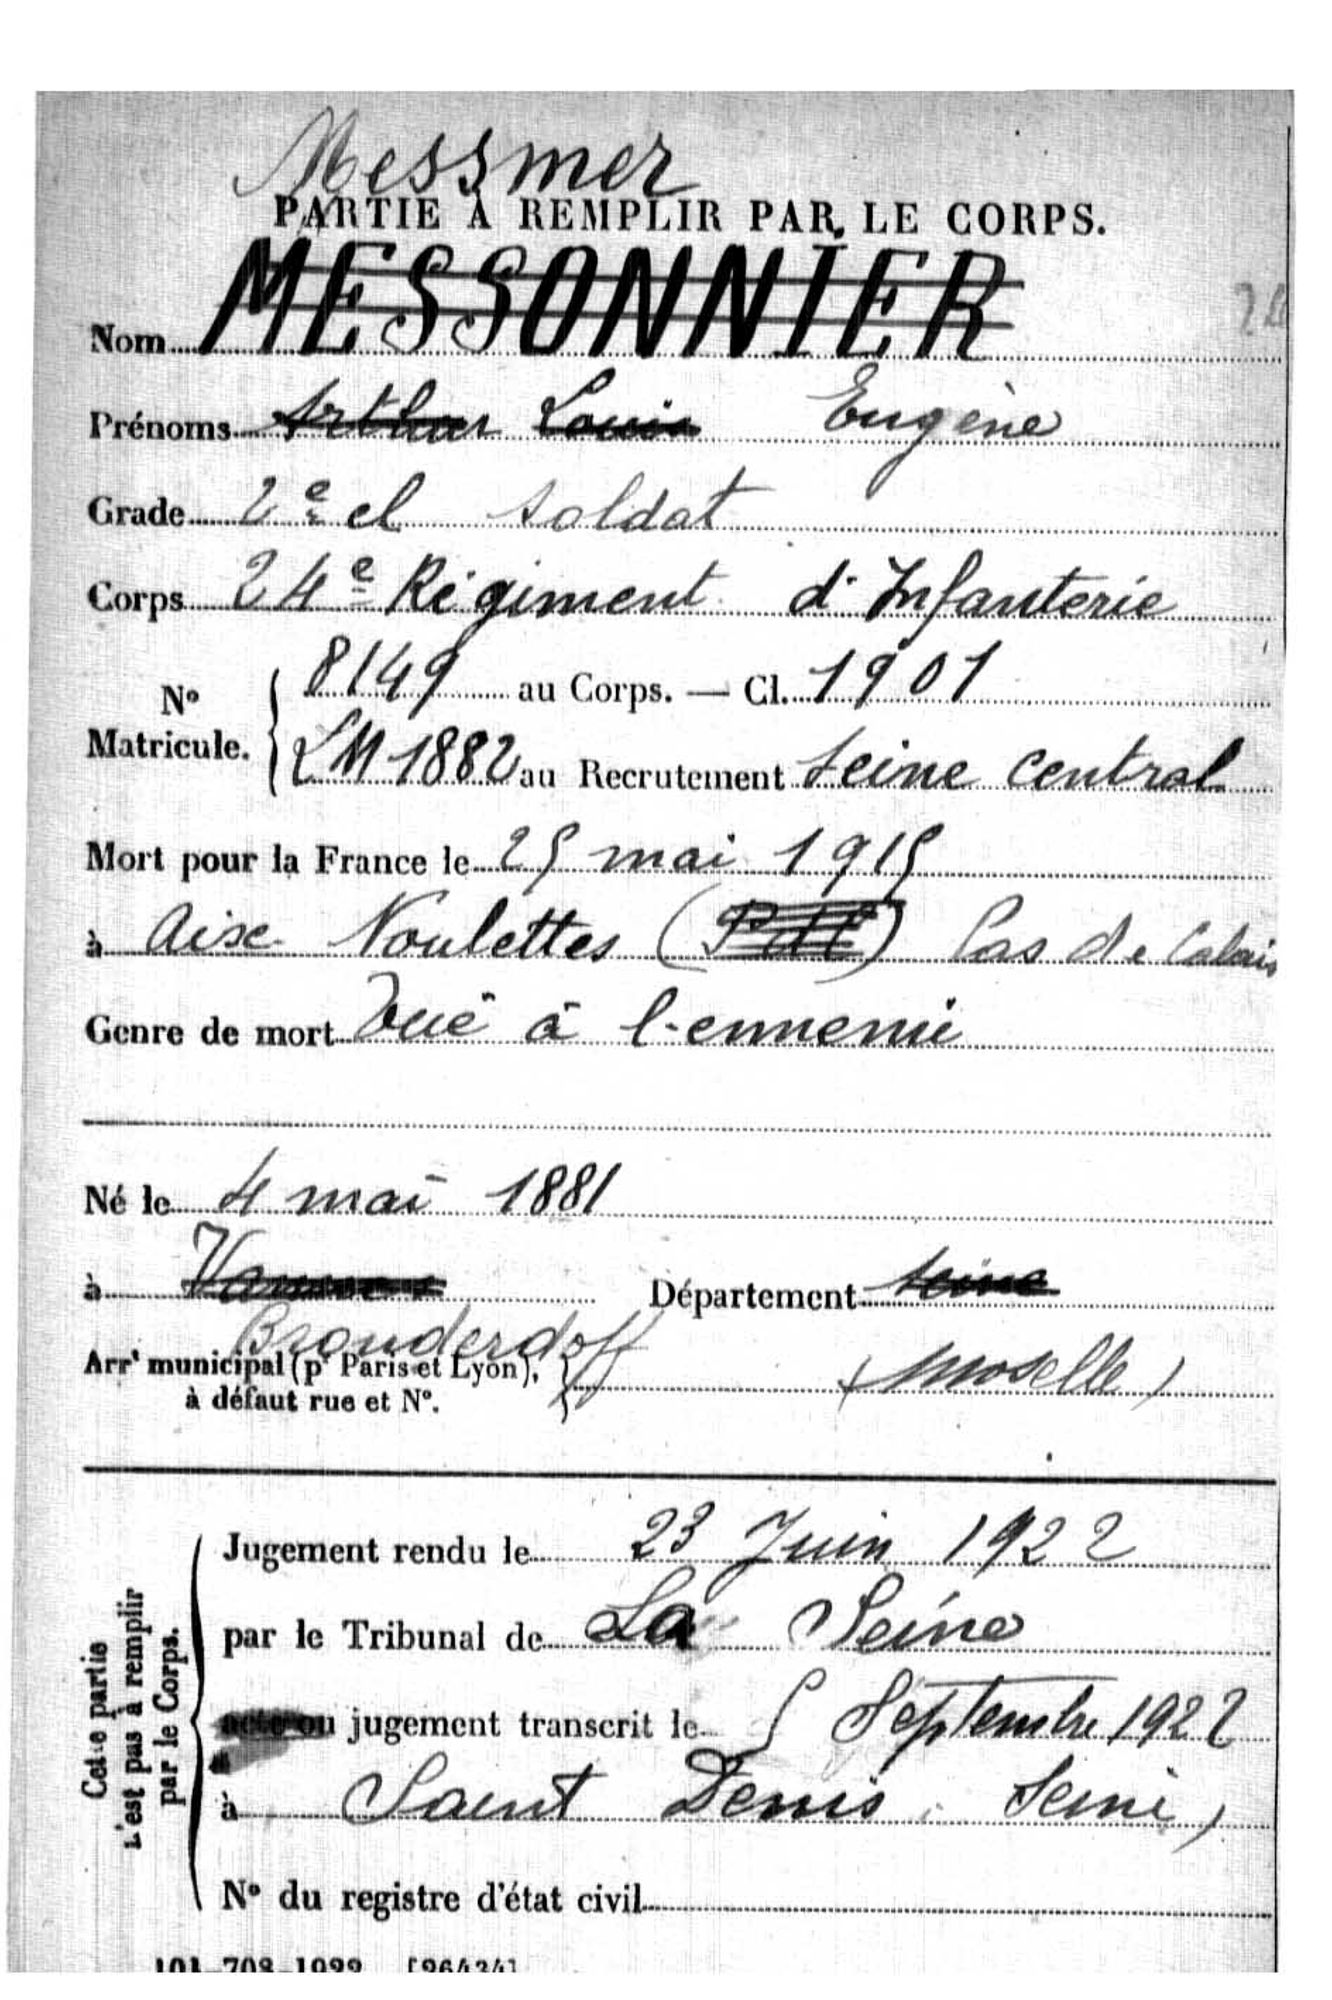 Messmer
PARTIE À REMPLIR PAR LE CORPS.
Nom MESSONNIER
Prénoms Arthur Louis Eugène
Grade 2e cl soldat
Corps 24e Régiment d'Infanterie
N° Matricule. 8149 au Corps. — Cl. 1901
LM 1882 au Recrutement Seine Central
Mort pour la France le 25 mai 1915
à Aix Noulettes (PdC) Pas de Calais
Genre de mort Tué à l'ennemi
Né le 4 mai 1881
à Département Seine
Brouderdoff
Arrt municipal (pr Paris et Lyon), à défaut rue et N°. (Moselle)
Cette partie n'est pas à remplir par le Corps.
Jugement rendu le 23 Juin 1922
par le Tribunal de La Seine
acte ou jugement transcrit le 5 Septembre 1922
à Saint Denis Seine)
N° du registre d'état civil
101-708-1922 [26434]